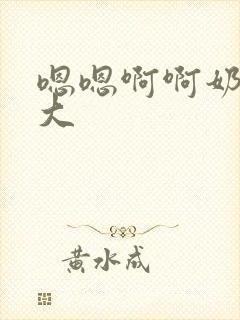 嗯嗯啊啊奶
大
黄水成